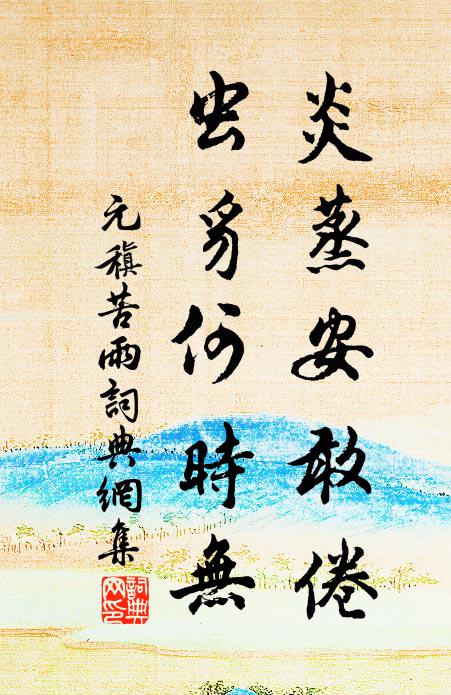 炎蒸安敢倦
虫豸何時無
元稹苦雨詞典網集
詞典网印